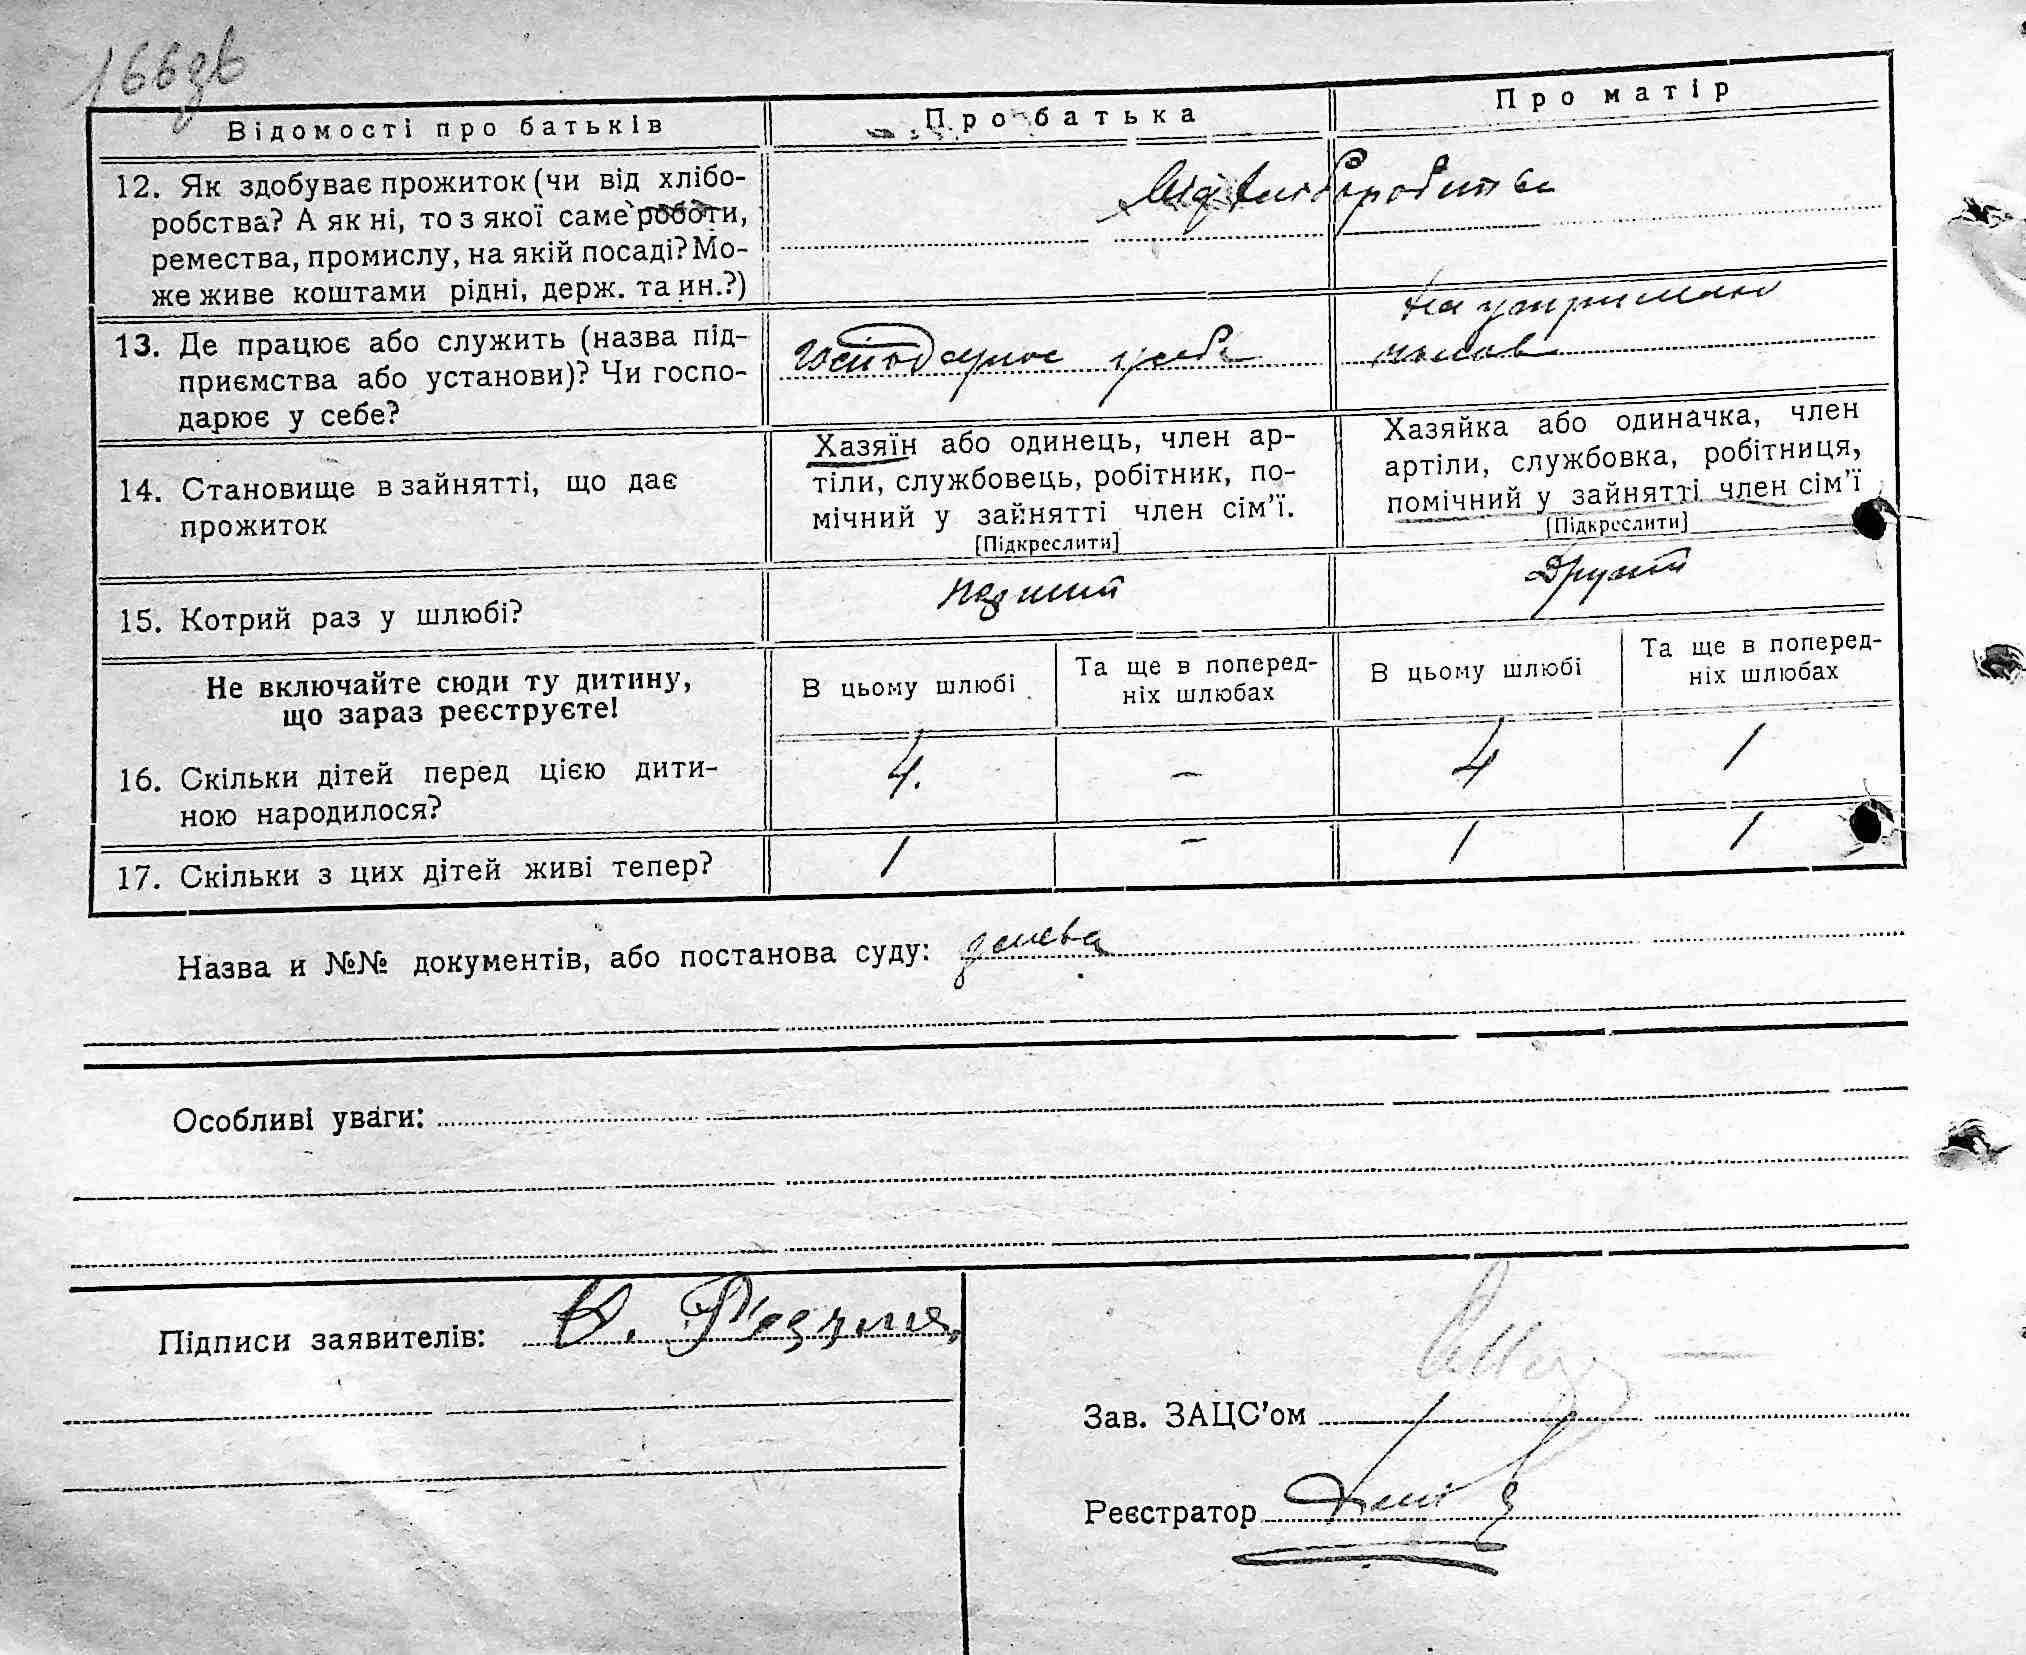 166зв
Відомості про батьків
Про батька
Про матір
12. Як здобуває прожиток (чи від хлібо-
робства? А як ні, то з якої саме роботи,
ремества, промислу, на якій посаді? Мо-
же живе коштами рідні, держ. та ин.?)
Від хліборобства
13. Де працює або служить (назва під-
приємства або установи)? Чи госпо-
дарює у себе?
Господарює у себе
На утриманні
14. Становище в зайнятті, що дає
прожиток
Хазяїн або одинець, член ар-
тіли, службовець, робітник, по-
мічний у зайнятті член сім'ї.
[Підкреслити]
Хазяйка або одиначка, член
артіли, службовка, робітниця,
помічний у зайнятті член сім'ї
[Підкреслити]
15. Котрий раз у шлюбі?
Перший
Другий
Не включайте сюди ту дитину,
що зараз реєструєте!
В цьому шлюбі
Та ще в поперед-
ніх шлюбах
В цьому шлюбі
Та ще в поперед-
ніх шлюбах
16. Скільки дітей перед цією дити-
ною народилося?
4. – 4 1
17. Скільки з цих дітей живі тепер?
1 – 1 1
Назва и №№ документів, або постанова суду:
Особливі уваги:
Підписи заявителів:
Зав. ЗАЦС'ом
Реєстратор